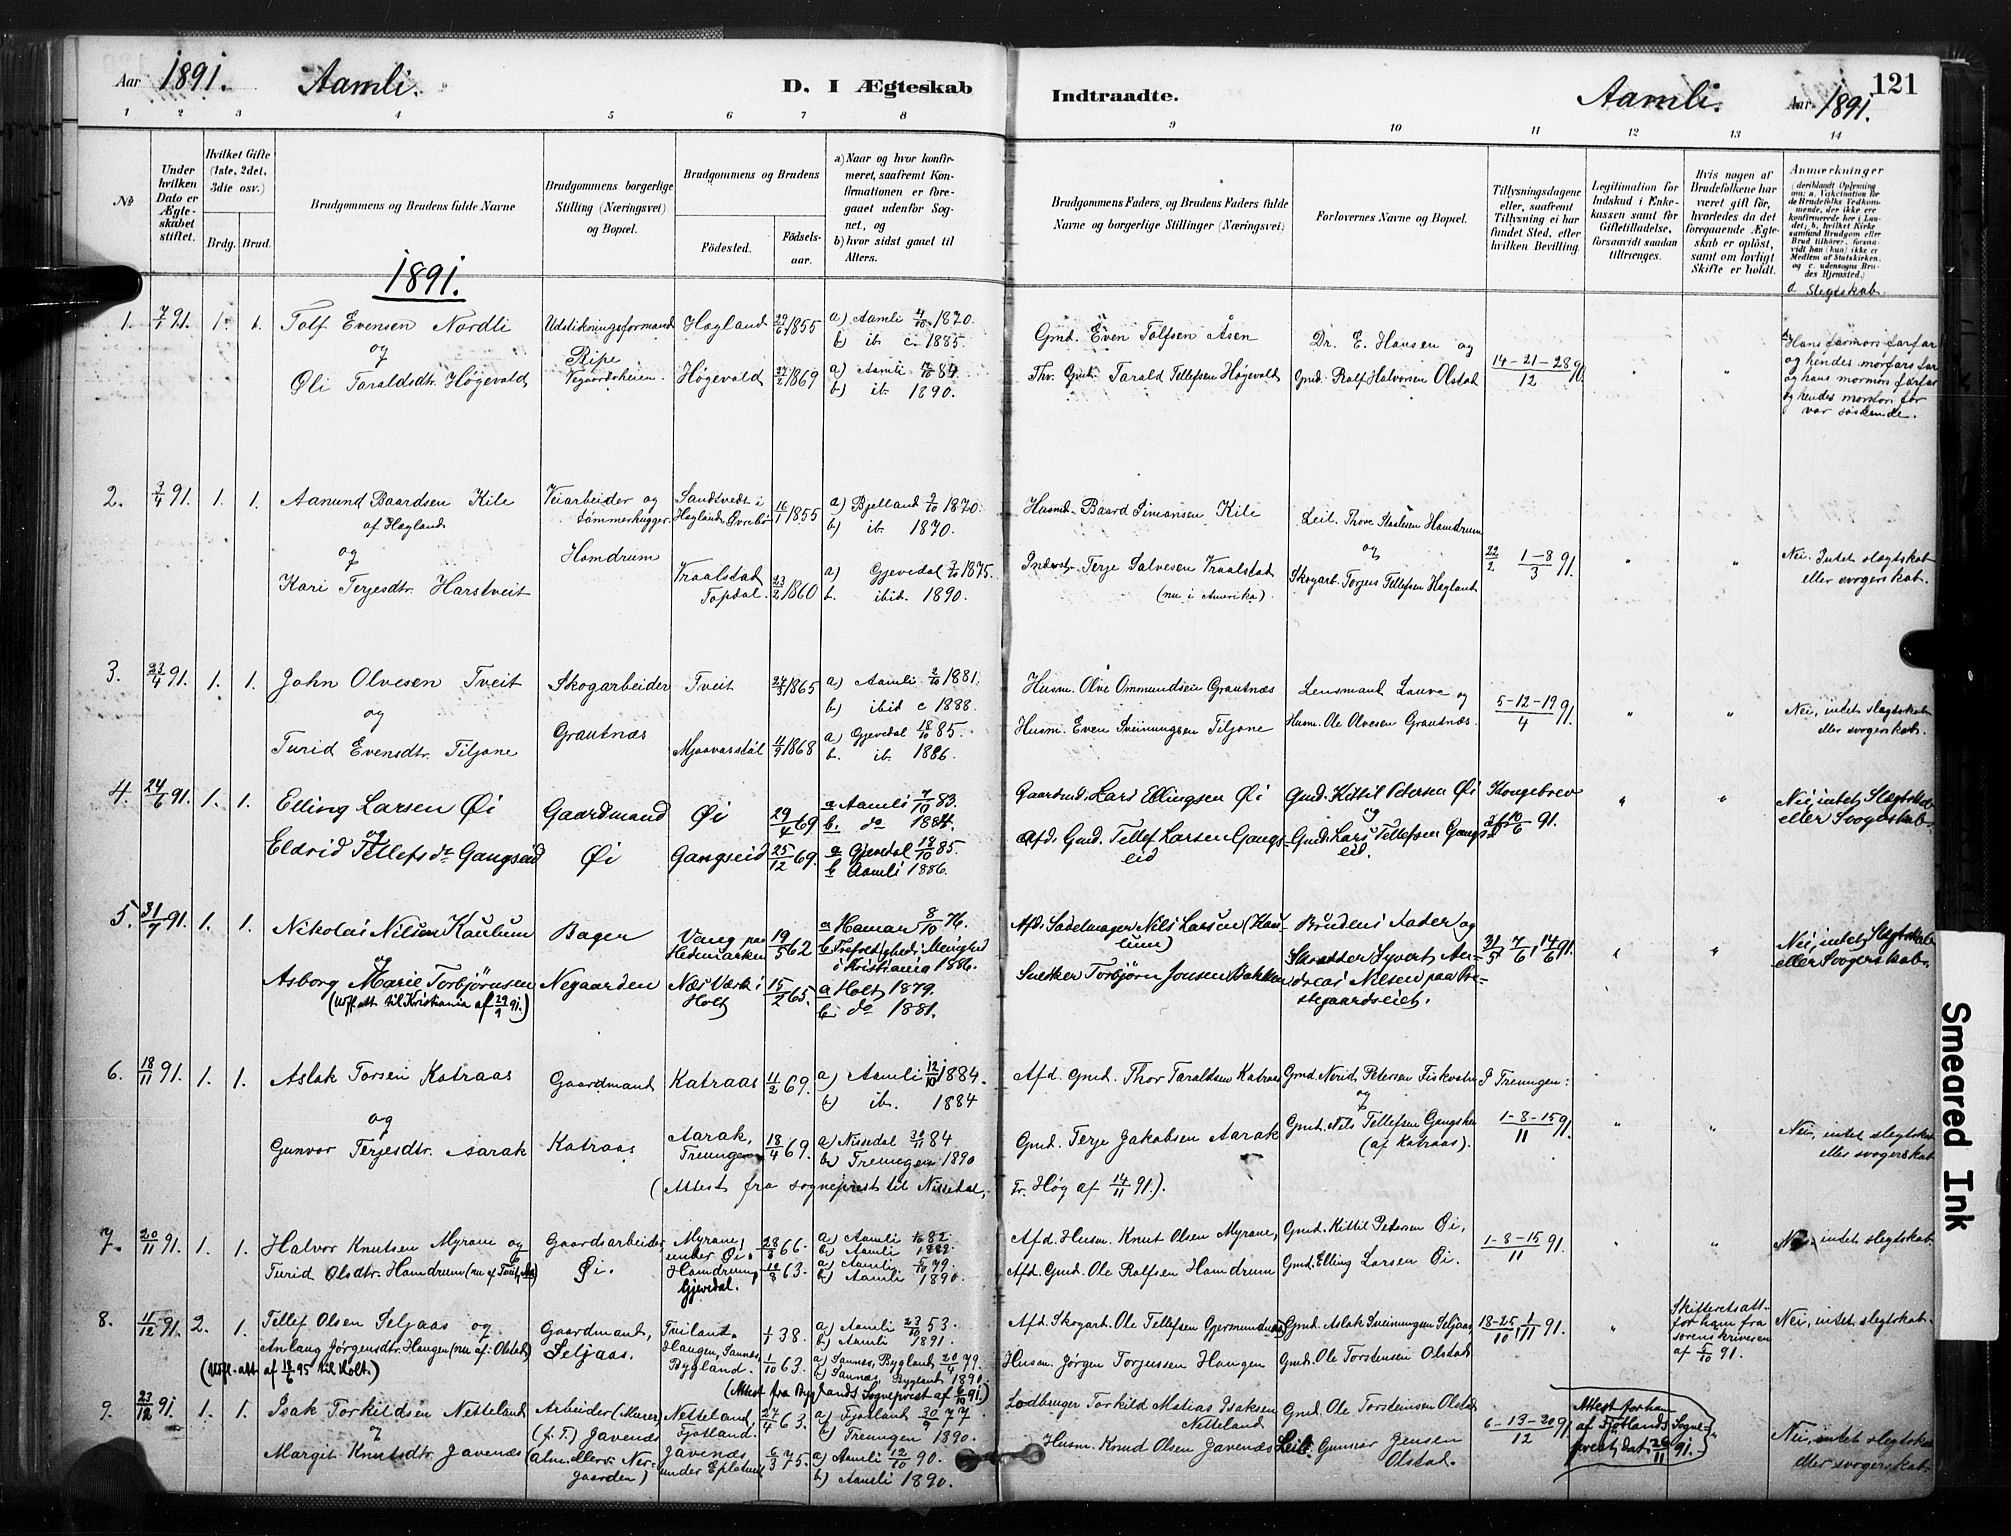 Aar 1891. Aamli. D. I Ægteskab Indtraadte. Aamli. Aar 1891. 121
1 2 3 4 5 6 7 8 9 10 11 12 13 14
No
Under hvilken Dato er Ægteskabet stiftet.
Hvilket Gifte (1ste, 2det, 3die osv.)
Brdg. Brud.
Brudgommens og Brudens fulde Navne
Brudgommens borgerlige Stilling (Næringsvei) og Bopæl.
Brudgommens og Brudens
Födested. Födsels-aar.
a) Naar og hvor konfirmeret, saafremt Konfirmationen er foregaaet udenfor Sognet, og
b) hvor sidst gaaet til Alters.
Brudgommens Faders og Brudens Faders fulde Navne og borgerlige Stillinger (Næringsvei)
Forlovernes Navne og Bopæl.
Tillysningsdagene eller, saafremt Tillysning ei har fundet Sted, efter hvilken Bevilling.
Legitimation for Indskud i Enkekassen samt for Giftetilladelse, forsaavidt saadan tiltrænges.
Hvis nogen af Brudefolkene har været gift för, hvorledes da det foregaaende Ægteskab er oplöst, samt om lovligt Skifte er holdt.
Anmærkninger
d Slegtskab
1891.
1. 7/1 91. 1. 1. Tolf Evensen Nordli Udstikningsformand Hagland 29/6 1855 a) Aamli 4/10 1870. Gmd. Even Tolfsen Åsen Dr. E. Hansen og 14-21-28/12 90. " " Hans farmors farfar
og Ripe b) ib c. 1885. og hendes morfars far
Oli Taraldsdtr. Høgevald Vegaardsheien. Høgevold 1869 a) Aamli 84 Tarald Tellefsen Høgevold Gmd. Rolf Halvorsen Olstad og hans mormors farfar
b) ib. 1890. og hendes morfars far
var søskende.
2. 3/4 91. 1. 1. Aanund Baardsen Kile Veiarbeider og Sandsvedt i 16/1 1855 a) Bjelland 2/10 1870. Husmd. Baard Simonsen Kile Leil. Thore Hamdrum 22/2 1-8/3 91. " " Nei. Intet slægtskab
af Hægland tømmerhugger. Hægland, Øvrebø b) ib. 1870. og eller svogerskab.
og Homdrum
Kari Terjesdtr. Harstveit Vraalstad 23/2 1860 a) Gjevedal 1875. Inderst. Terje Salvesen Vraalstad Skogarb. Torjus Tellefsen Hægland
Topdal. b. ibid. 1890. (nu i Amerika).
3. 23/4 91. 1. 1. John Olvesen Tveit Skogarbeider Tveit 1865 a) Aamli 2/10 1881. Husm. Olve Ommundsen Grautnæs Lensmand Lauve og 5-12-19/4 91. " " Nei, intet slægtskab
og Grautnæs b) ibid c 1888. eller svogerskab.
Turid Evensdtr. Tiljane Mjaavarstøl 11/9 1868 a) Gjevedal 18/10 85. Husm. Even Sveinungsen Tiljane Husm. Ole Olvesen Grautnæs.
b. ib. 1886.
4. 24/6 91. 1. 1. Elling Larsen Øi Gaardmand Øi 29/4 69 a Aamli 7/10 83. Gaardmd. Lars Ellingsen Øi Gmd. Kittil Petersen Øi Kongebrev " " Nei, intet Slegtskab
og b. do 1884. og af 10/6 91. eller Svogerskab.
Eldrid Tellefsdr Gangseid Øi Gangseid 25/12 69. a Gjevedal 18/10 85. Afd. Gmd. Tellef Larsen Gangseid Gmd. Lars Tellefsen Gangseid.
b Aamli 1886.
5. 31/7 91. 1. 1. Nikolai Nilsen Kaulum Bager Vang paa Hedemarken 19/5 62 a Hamar 8/10 76. Afd. Sadelmager Nils Larsen (Kaulum) Brudens Fader og 31/5 7/6, 14/6 91. " " Nei, intet Slegtskab
og b. Trefoldigheds Menighed i Kristiania 1886. Skrædder Syvert Andreas Nilsen paa Prestegaardseiet. eller Svogerskab.
Asborg Marie Torbjörnsen Negaarden Næs Værk i Holt 15/2 65. a Holt 1879. Snedker Torbjörn Jonsen Bakken
(Utfl. att. til Kristiania af 29/9 91.) b. do 1881.
6. 18/11 91. 1. 1. Aslak Torsen Katraas Gaardmand Katraas 11/2 69. a) Aamli 12/10 1884. Afd. Gmd. Thor Taraldsen Katraas Gmd. Nerid Petersen Fiskvatn I Treungen: " " Nei, intet slegtskab
og b) ib. 1884 og 1-8-15/11 91. eller svogerskab
Gunvor Terjesdtr. Aarak Katraas Aarak, Treungen 18/4 69. a) Nissedal 30/11 84 Gmd. Terje Jakobsen Aarak Gmd. Nils Tellefsen Gangshei
b) Treungen 1890 (af Katraas).
(Attest fra sogneprest til Nissedal, Fr. Høg af 14/11 91.).
7. 20/11 91. 1. 1. Halvor Knutsen Myrane og Gaardsarbeider, Myrane, under Øi. 66. a) Aamli 82. Afd. Husm. Knut Olsen Myrane, Gmd. Kittil Petersen Øi, 1-8-15/11 91. " " Nei, intet slegtskab.
b) Aamli
Turid Olsdtr. Hamdrum Øi. Hamdrum, Gjevedal. 63. a) Aamli 5/10 79. Afd. Gmd. Ole Rolfsen Hamdrum Gmd. Elling Larsen Øi.
b) Aamli 1890.
8. 11/12 91. 2. 1. Tellef Olsen Seljaas og Gaardmand, 38. a) Aamli 23/10 53. Afd. Skogarb. Ole Tellefsen Gjermundnes Gmd. Aslak Sveinungsen Seljaas, 18-25/10, 1/11 91. " Skifteretsatt. for ham fra sorenskriveren af 5/10 91. Nei, intet slegtskab.
b) Aamli 1891.
Anlaug Jørgensdtr. Haugen (nu af: Olstad) Seljaas. Haugen, Sannes, Bygland. 1/10 63. a) Sannes, Bygland 20/4 79. Husm. Jørgen Torjussen Haugen Gmd. Ole Torstensen Olstad
(Utfl.-att. af 95 til Holt.) b) Sannes, Bygland 1890.
(Attest fra Byglands Sogneprest af 6/10 91.)
9. 23/12 91. 1. 1. Isak Torkildsen Netteland Arbeider (Murer) Netteland, Fjotland. 27/4 63. a) Fjotland 30/9 77 Torkild Matias Isaksen Netteland Gmd. Ole Torsteinsen Olstad 6-13-20/12 91 Attest for ham af Fjotlands Sogneprest, dat. 26/11 91. " Nei, intet slegtskab
og (f. T.) Javenæs b) Treungen 1890. eller svogerskab.
Margit Knutsdtr Javenæs Javenæs under Eplatveit 6/3 75. a) Aamli 12/10 90. Husm. Knud Olsen Javenæs Leil. Gunnar Jensen Olstad.
b) Aamli 1890.
Smeared Ink